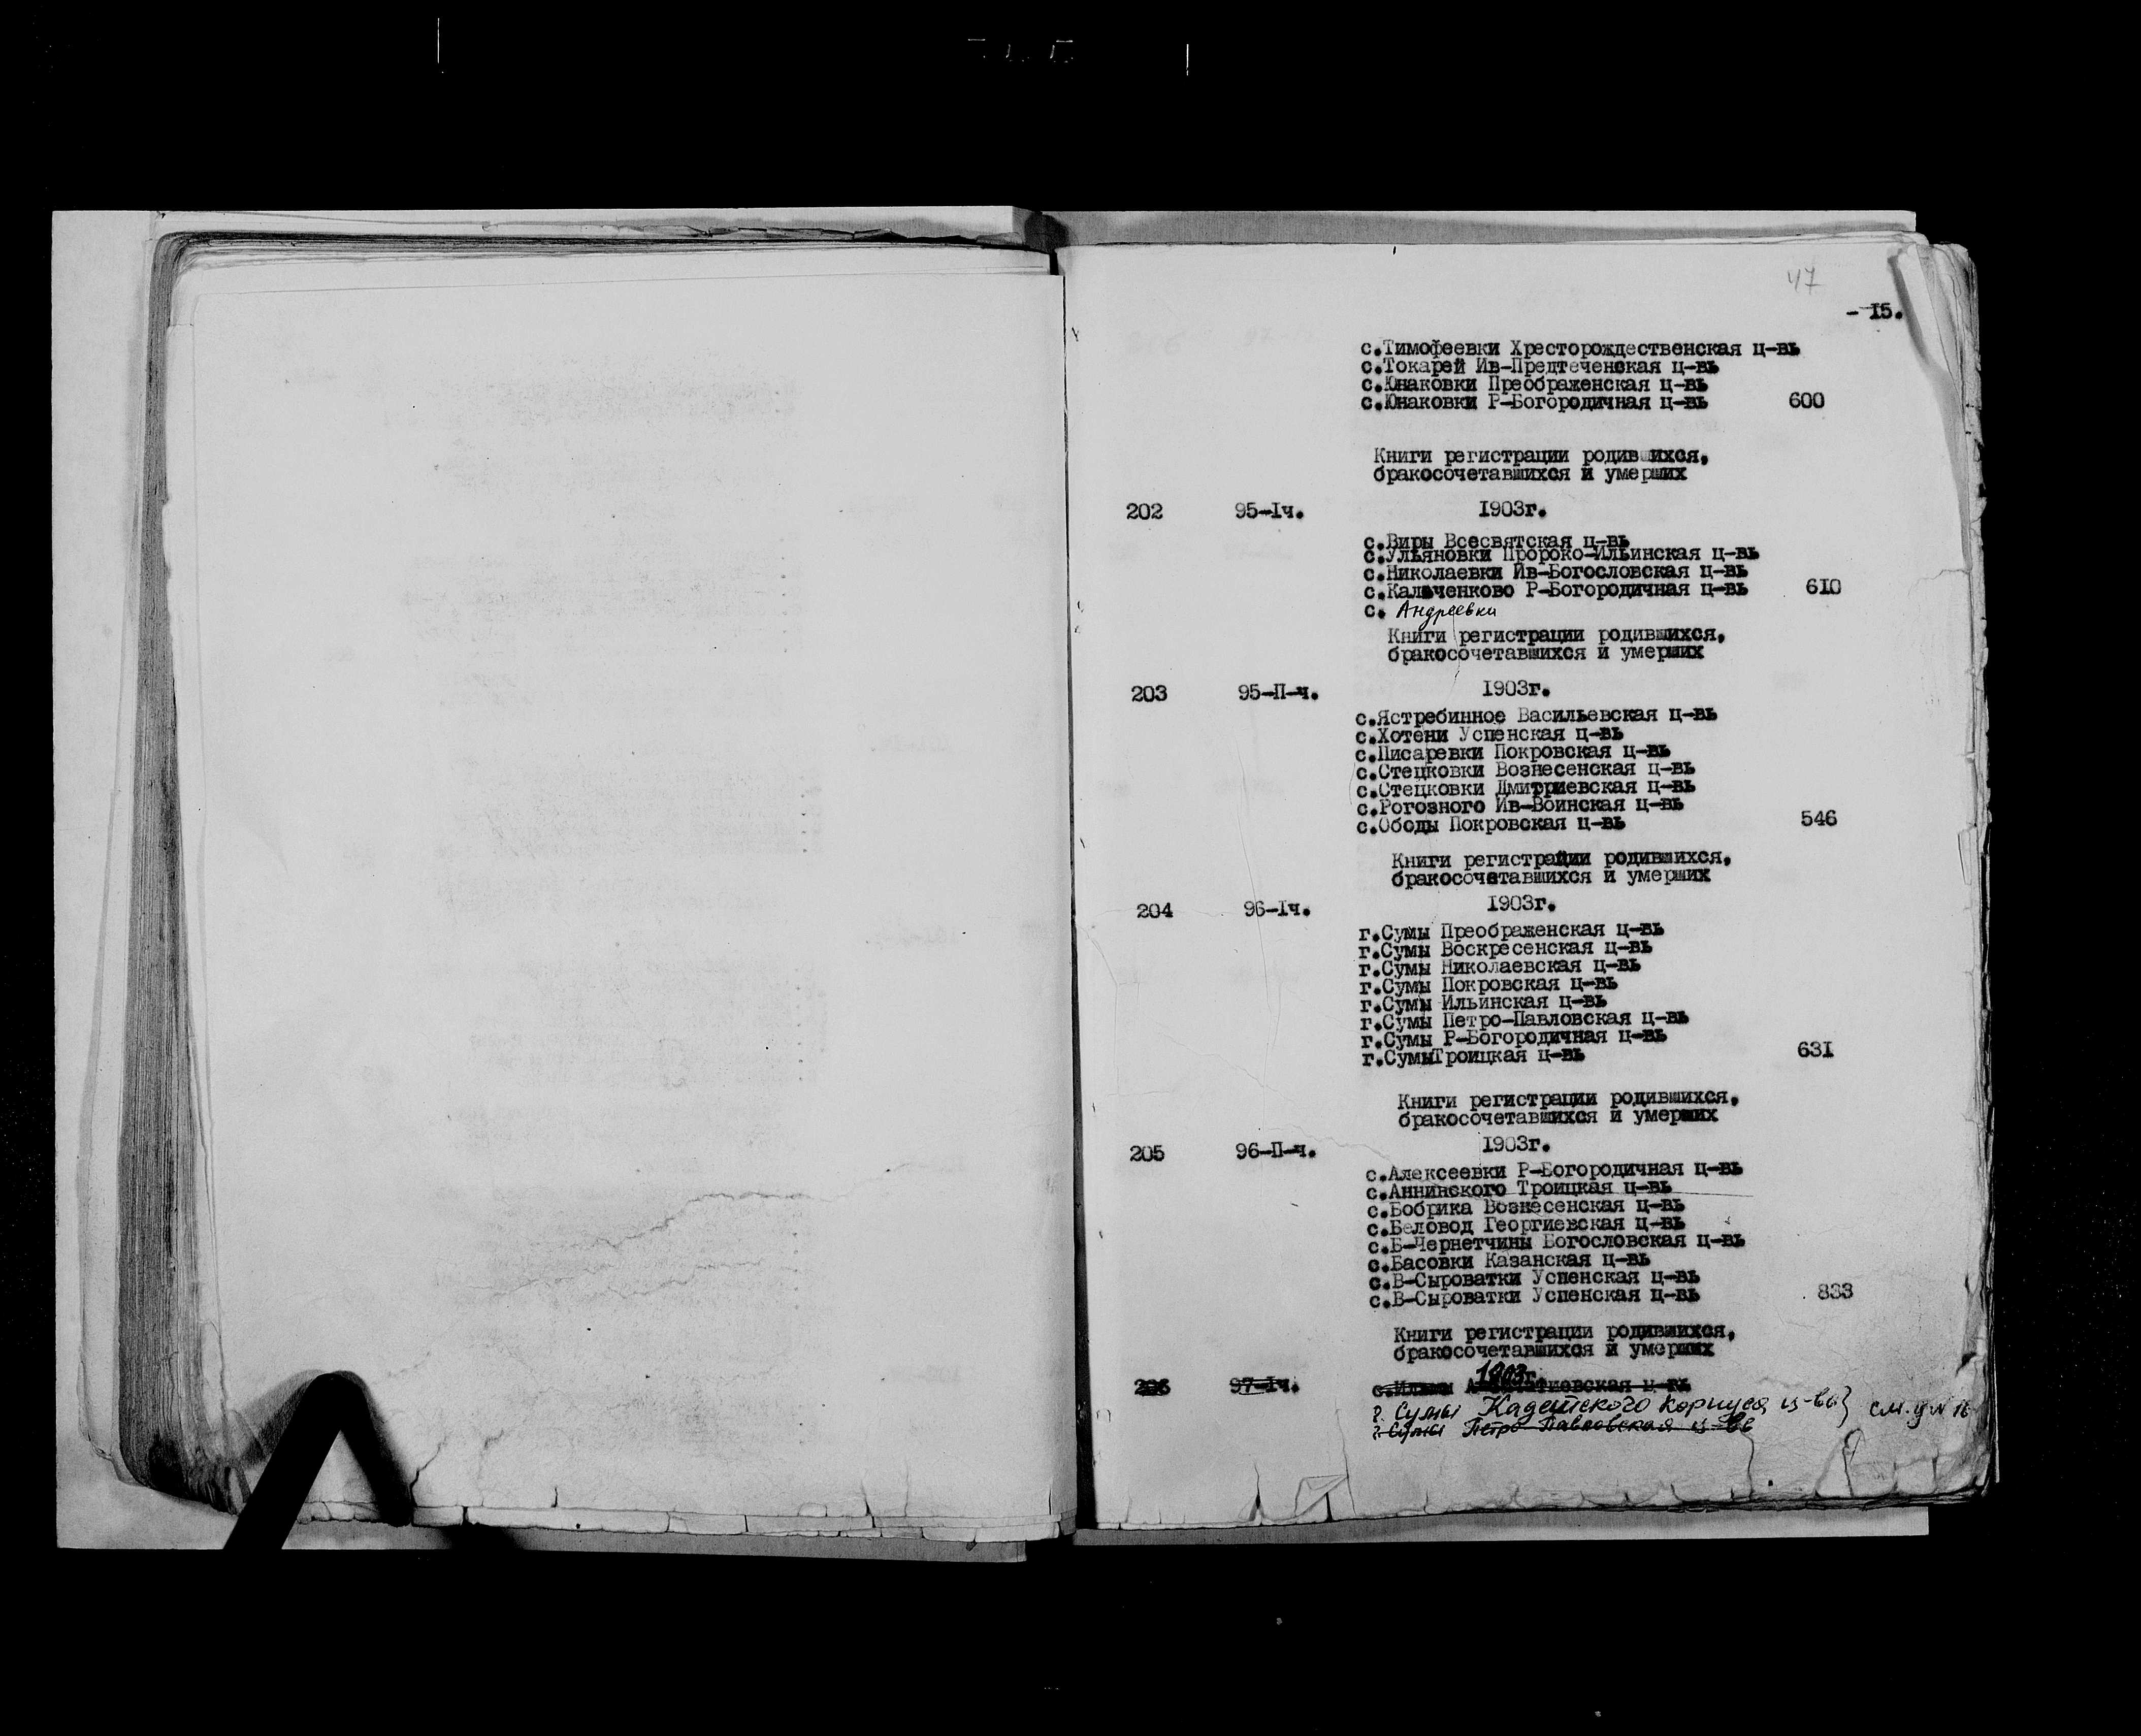 47
- 15.
с.Тимофеевки Хресторождественская ц-вь
с.Токарей Ив-Предтеченская ц-вь
с.Юнаковки Преображенская ц-вь
с.Юнаковки Р-Богородичная ц-вь 600
Книги регистрации родившихся,
бракосочетавшихся и умерших
202 95-Iч. 1903г.
с.Виры Всесвятская ц-вь
с.Ульяновки Пророко-Ильинская ц-вь
с.Николаевки Ив-Богословская ц-вь
с.Кальченково Р-Богородичная ц-вь 610
с. Андреевки
Книги регистрации родившихся,
бракосочетавшихся и умерших
203 95-II-ч. 1903г.
с.Ястребинное Васильевская ц-вь
с.Хотени Успенская ц-вь
с.Писаревки Покровская ц-вь
с.Стецковки Вознесенская ц-вь
с.Стецковки Дмитриевская ц-вь
с.Рогозного Ив-Воинская ц-вь
с.Ободы Покровская ц-вь 546
Книги регистрации родившихся,
бракосочетавшихся и умерших
204 96-Iч. 1903г.
г.Сумы Преображенская ц-вь
г.Сумы Воскресенская ц-вь
г.Сумы Николаевская ц-вь
г.Сумы Покровская ц-вь
г.Сумы Ильинская ц-вь
г.Сумы Петро-Павловская ц-вь
г.Сумы Р-Богородичная ц-вь
г.СумыТроицкая ц-вь 631
Книги регистрации родившихся,
бракосочетавшихся и умерших
205 96-II-ч. 1903г.
с.Алексеевки Р-Богородичная ц-вь
с.Аннинского Троицкая ц-вь
с.Бобрика Вознесенская ц-вь
с.Беловод Георгиевская ц-вь
с.Б-Чернетчины Богословская ц-вь
с.Басовки Казанская ц-вь
с.В-Сыроватки Успенская ц-вь
с.В-Сыроватки Успенская ц-вь 833
Книги регистрации родившихся,
бракосочетавшихся и умерших
1903г.
206 97-Iч. ц-вь
г. Сумы Кадетского корпуса ц-вь} см. д №
г. Сумы Петро Павловская ц-вь